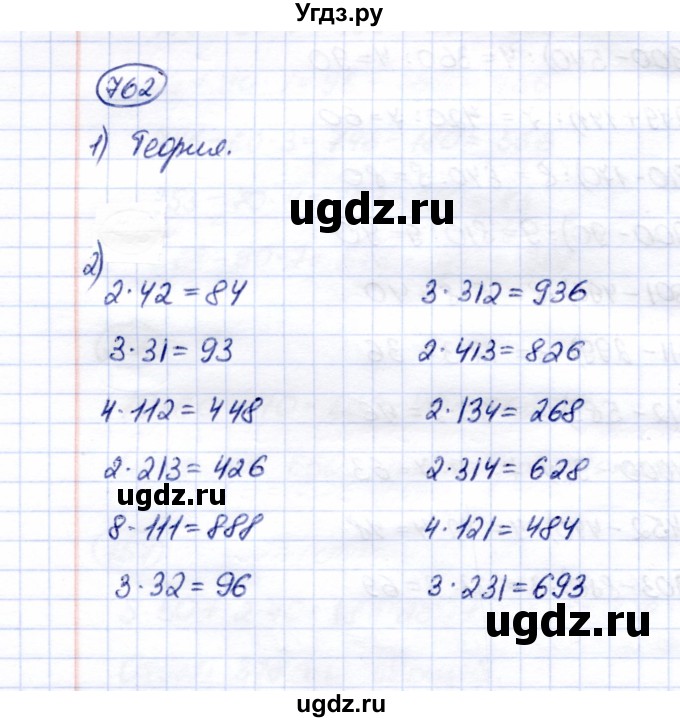 Угдз.ру
762
1) Теория.
ugdz.ru
2)
2·42=84
3·312=936
3·31=93
2·413=826
4·112=448
2·134=268
2·213=426
2·314=628
ugdz.ru
8·111=888
4·121=484
3·32=96
3·231=693
ugdz.ru
ugdz.ru